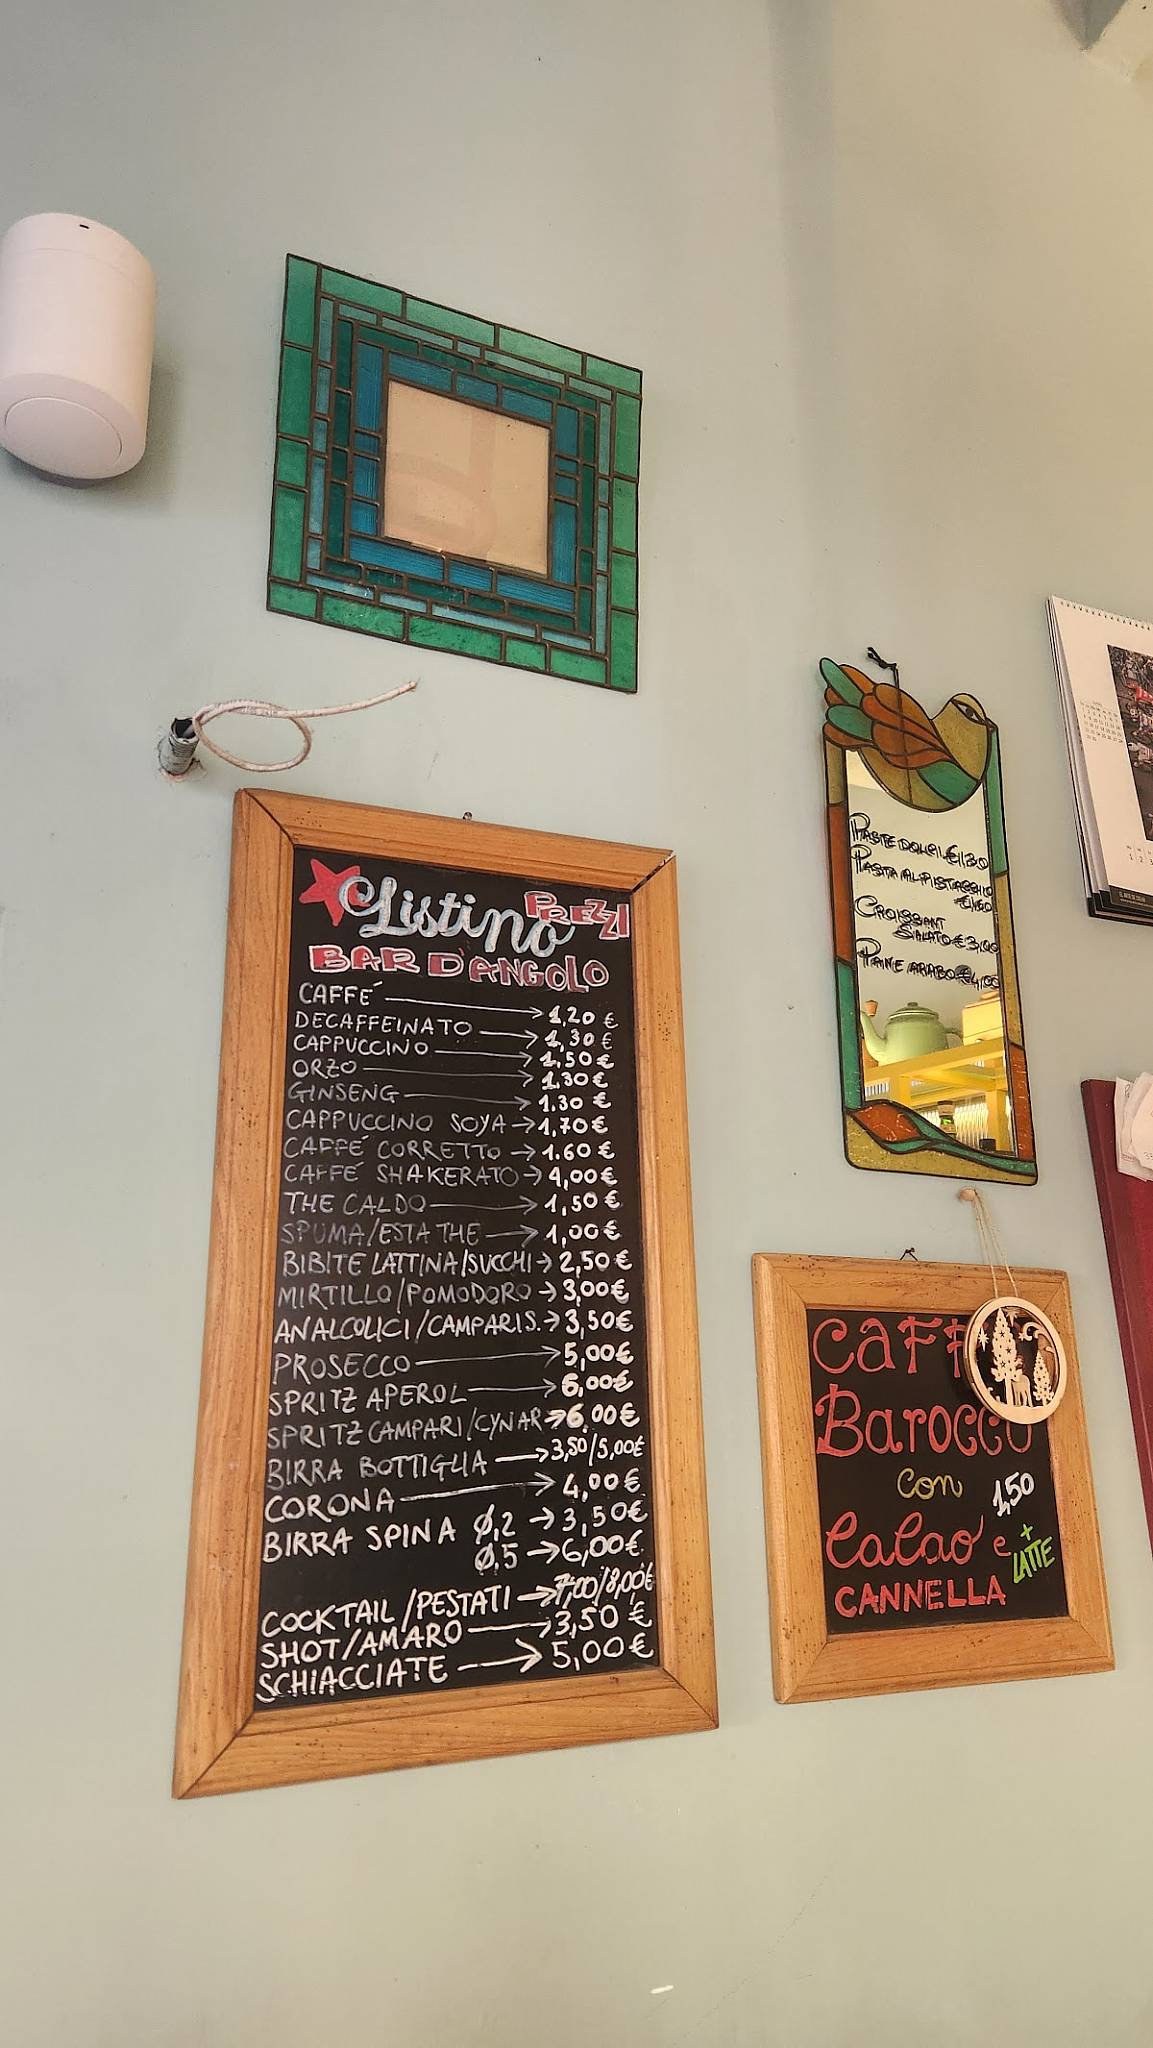 Listino PREZZI
BAR D'ANGOLO
CAFFÉ → 1,20 €
DECAFFEINATO → 1,30 €
CAPPUCCINO → 1,50 €
ORZO → 1.30 €
GINSENG → 1.30 €
CAPPUCCINO SOYA → 1,70 €
CAFFÉ CORRETTO → 1.60 €
CAFFÉ SHAKERATO → 4,00 €
THE CALDO → 1,50 €
SPUMA/ESTA THE → 1,00 €
BIBITE LATTINA/SUCCHI → 2,50 €
MIRTILLO/POMODORO → 3,00€
ANALCOLICI/CAMPARIS. → 3,50€
PROSECCO → 5,00€
SPRITZ APEROL → 6,00€
SPRITZ CAMPARI/CYNAR → 6,00€
BIRRA BOTTIGLIA → 3,50/5,00€
CORONA → 4,00€
BIRRA SPINA 0,2 → 3,50€
0,5 → 6,00€
COCKTAIL/PESTATI → 7,00/8,00€
SHOT/AMARO → 3,50 €
SCHIACCIATE → 5,00€
PASTE DOLCI €1,30
PASTA AL PISTACCHIO
€1,60
CROISSANT
SALATO €3,00
PANE ARABO €4,00
Barocco
con
1,50
CaCao e
+
LATTE
CANNELLA